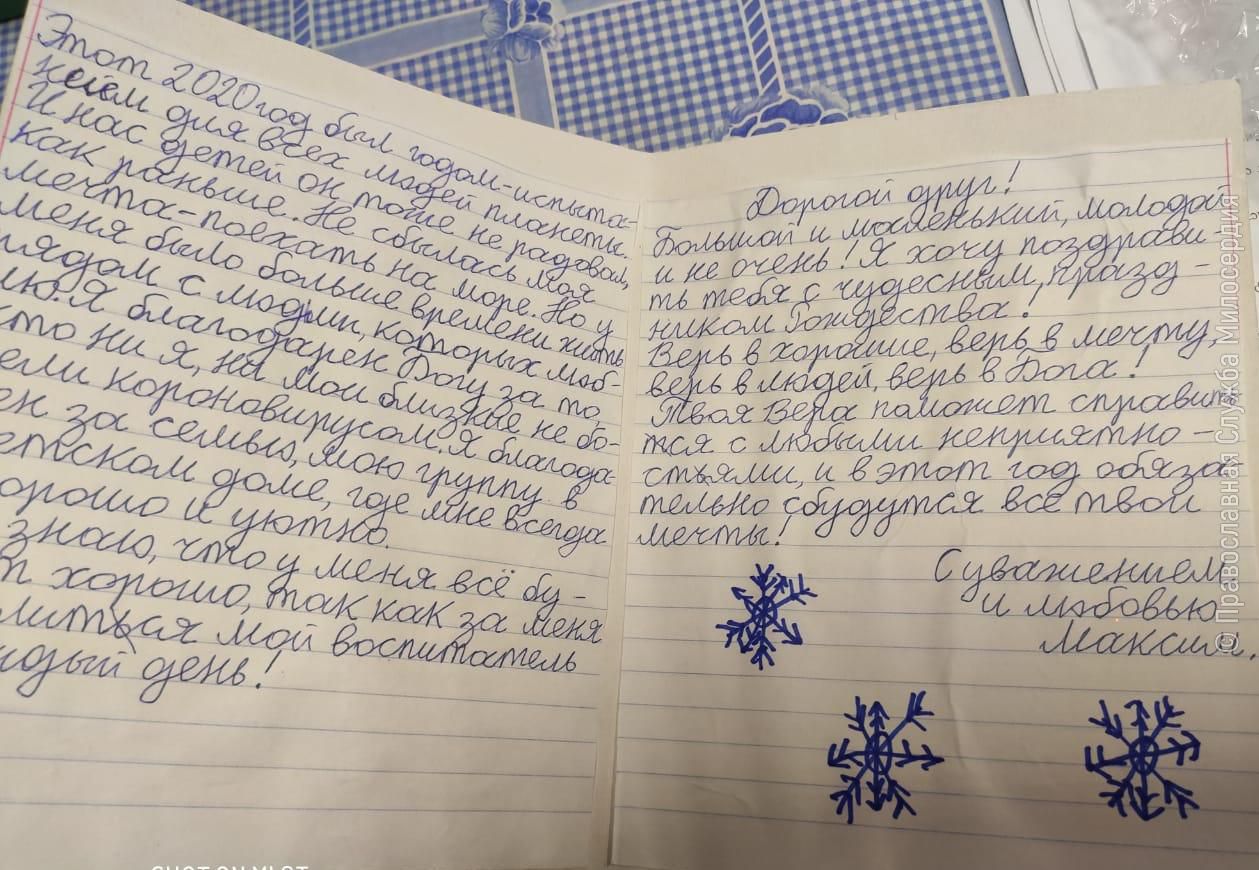 Этот 2020 год был годом-испыта-
нием для всех людей планеты.
И нас детей он тоже не радовал,
как раньше. Не сбылась моя
мечта-поехать на море. Но у
меня было больше времени жить
рядом с людьми, которых люб-
лю. Я благодарен Богу за то,
что ни я, ни мои близкие не бо-
ели короновирусом. Я благода-
ен за семью, мою группу в
етском доме, где мне всегда
орошо и уютно.
знаю, что у меня всё бу-
т хорошо, так как за меня
литься мой воспитатель
ждый день!
Дорогой друг!
Большой и маленький, молодой
и не очень! Я хочу поздрави-
ть тебя с чудесным, празд-
ником Рождества!
Верь в хорошие, верь в мечту,
верь в людей, верь в Бога!
Твоя Вера поможет справит
тся с любыми неприятно-
стьями, и в этот год обяза
тельно сбудутся все твои
мечты!
С уважением
и любовью
Максим.
© Православная Служба Милосердия
SHOT ON MI 9T